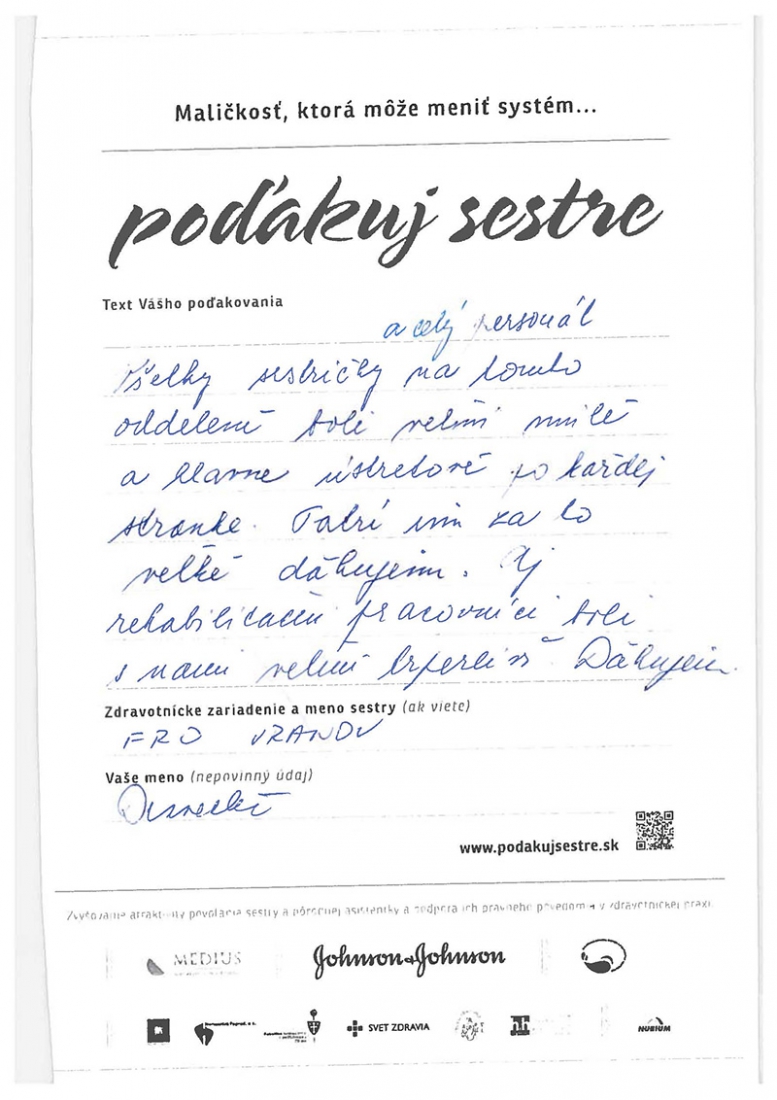 Maličkosť, ktorá môže meniť systém...
poďakuj sestre
Text Vášho poďakovania
a celý personál
Všetky sestričky na tomto
oddelení boli veľmi milé
a hlavne ústretové po každej
stránke. Patrí im za to
veľké ďakujem. Aj
rehabilitační pracovníci boli
s nami veľmi trpezliví. Ďakujem.
Zdravotnícke zariadenie a meno sestry (ak viete)
FRO VRANOV
Vaše meno (nepovinný údaj)
www.podakujsestre.sk
Zvyšovanie atraktivity povolania sestry a pôrodnej asistentky a podpora ich právneho povedomia v zdravotníckej praxi.
MEDIUS
Johnson & Johnson
SVET ZDRAVIA
NUBIUM